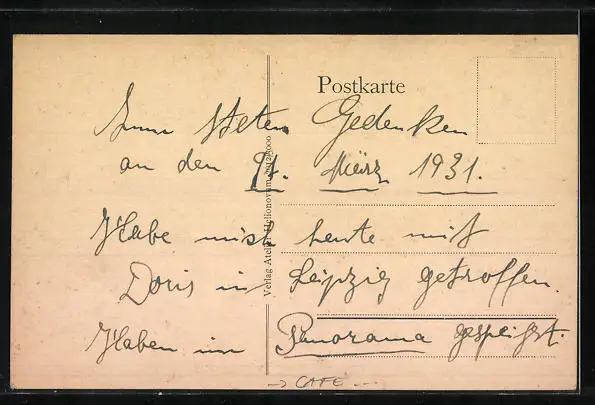 Postkarte
Zum steten Gedenken
an den 9. März 1931.
Habe mich heute mit
Doris in Leipzig getroffen.
Haben im Panorama gespeist.
→ CAFE
Verlag Atelier Heliono